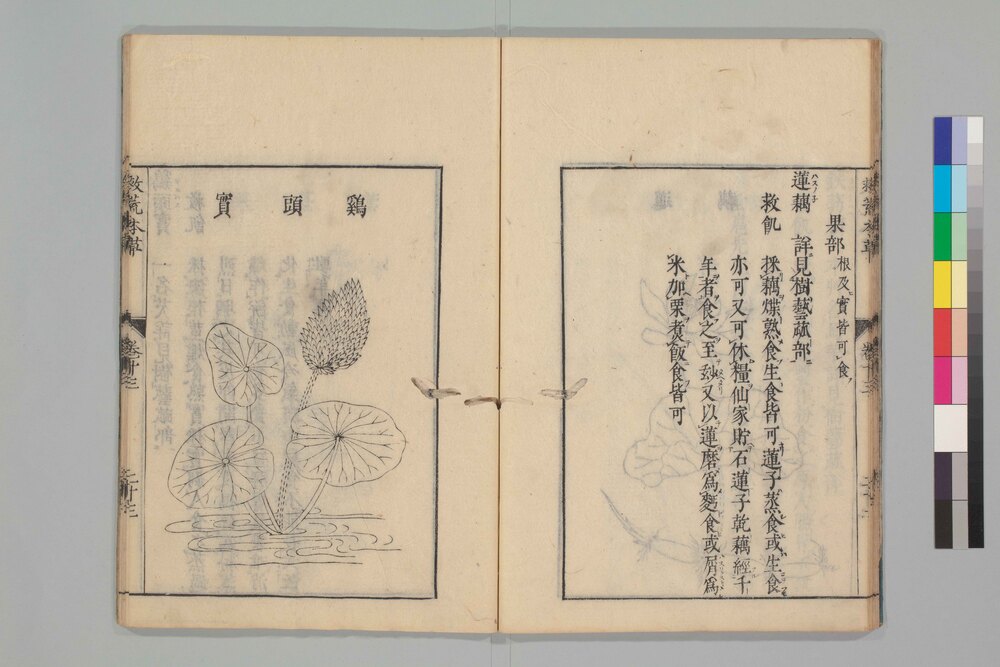 果部 根及實皆可食
蓮藕 詳見樹藝蓏部
ハスノ子
救飢
採藕煠熟食生食皆可蓮子蒸食或生食
亦可又可休糧仙家貯石蓮子乾藕經千
年者食之至玅又以蓮磨爲麫食或屑爲
米加粟煮飯食皆可
救荒本草
雞頭實
救荒本草